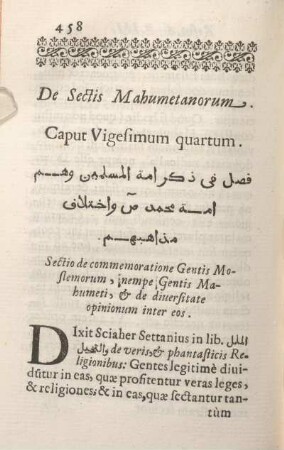 458
De Sectis Mahumetanorum.
Caput Vigesimum quartum.
فصل في ذكر امة المسلمين وهم
امة محمد صَ واختلاف
مذاهبهم.
Sectio de commemoratione Gentis Mo-
slemorum, nempe Gentis Ma-
humeti, & de diuersitate
opinionum inter eos.
DIxit Sciaher Settanius in lib. الملل
والنحل de veris, & phantasticis Re-
ligionibus: Gentes legitimè diui-
dũtur in eas, quæ profitentur veras leges,
& religiones: & in eas, quæ sectantur tan-
tùm